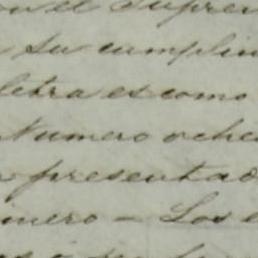 el Supre
su cumplim
letra es como
Numero oche
presentad
imero — Los